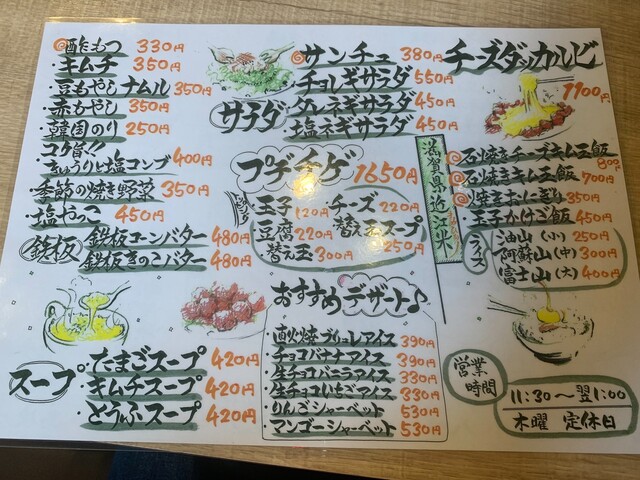 酢もつ 330円
キムチ 350円
豆もやしナムル 350円
赤もやし 350円
韓国のり 250円
コク旨!!
きゅうりと塩コンブ 400円
季節の焼き野菜 350円
塩やっこ 450円
鉄板
鉄板コーンバター 480円
鉄板きのこバター 480円
スープ
たまごスープ 420円
キムチスープ 420円
とうふスープ 420円
サラダ
サンチュ 380円
チョレギサラダ 550円
タレネギサラダ 450円
塩ネギサラダ 450円
プデチゲ 1650円
トッピング
玉子 120円 チーズ 220円
豆腐 220円 替えスープ 250円
替え玉 300円
おすすめデザート♪
直火焼ブリュレアイス 390円
チョコバナナアイス 390円
生チョコバニラアイス 330円
生チョコいちごアイス 330円
りんごシャーベット 530円
マンゴーシャーベット 530円
チーズダッカルビ
1100円
滋賀県近江米
石焼きチーズキムユ飯 800円
石焼きキムユ飯 700円
焼きおにぎり 350円
玉子かけご飯 450円
ライス
油山(小) 250円
阿蘇山(中) 300円
富士山(大) 400円
営業時間
11:30〜翌1:00
木曜 定休日